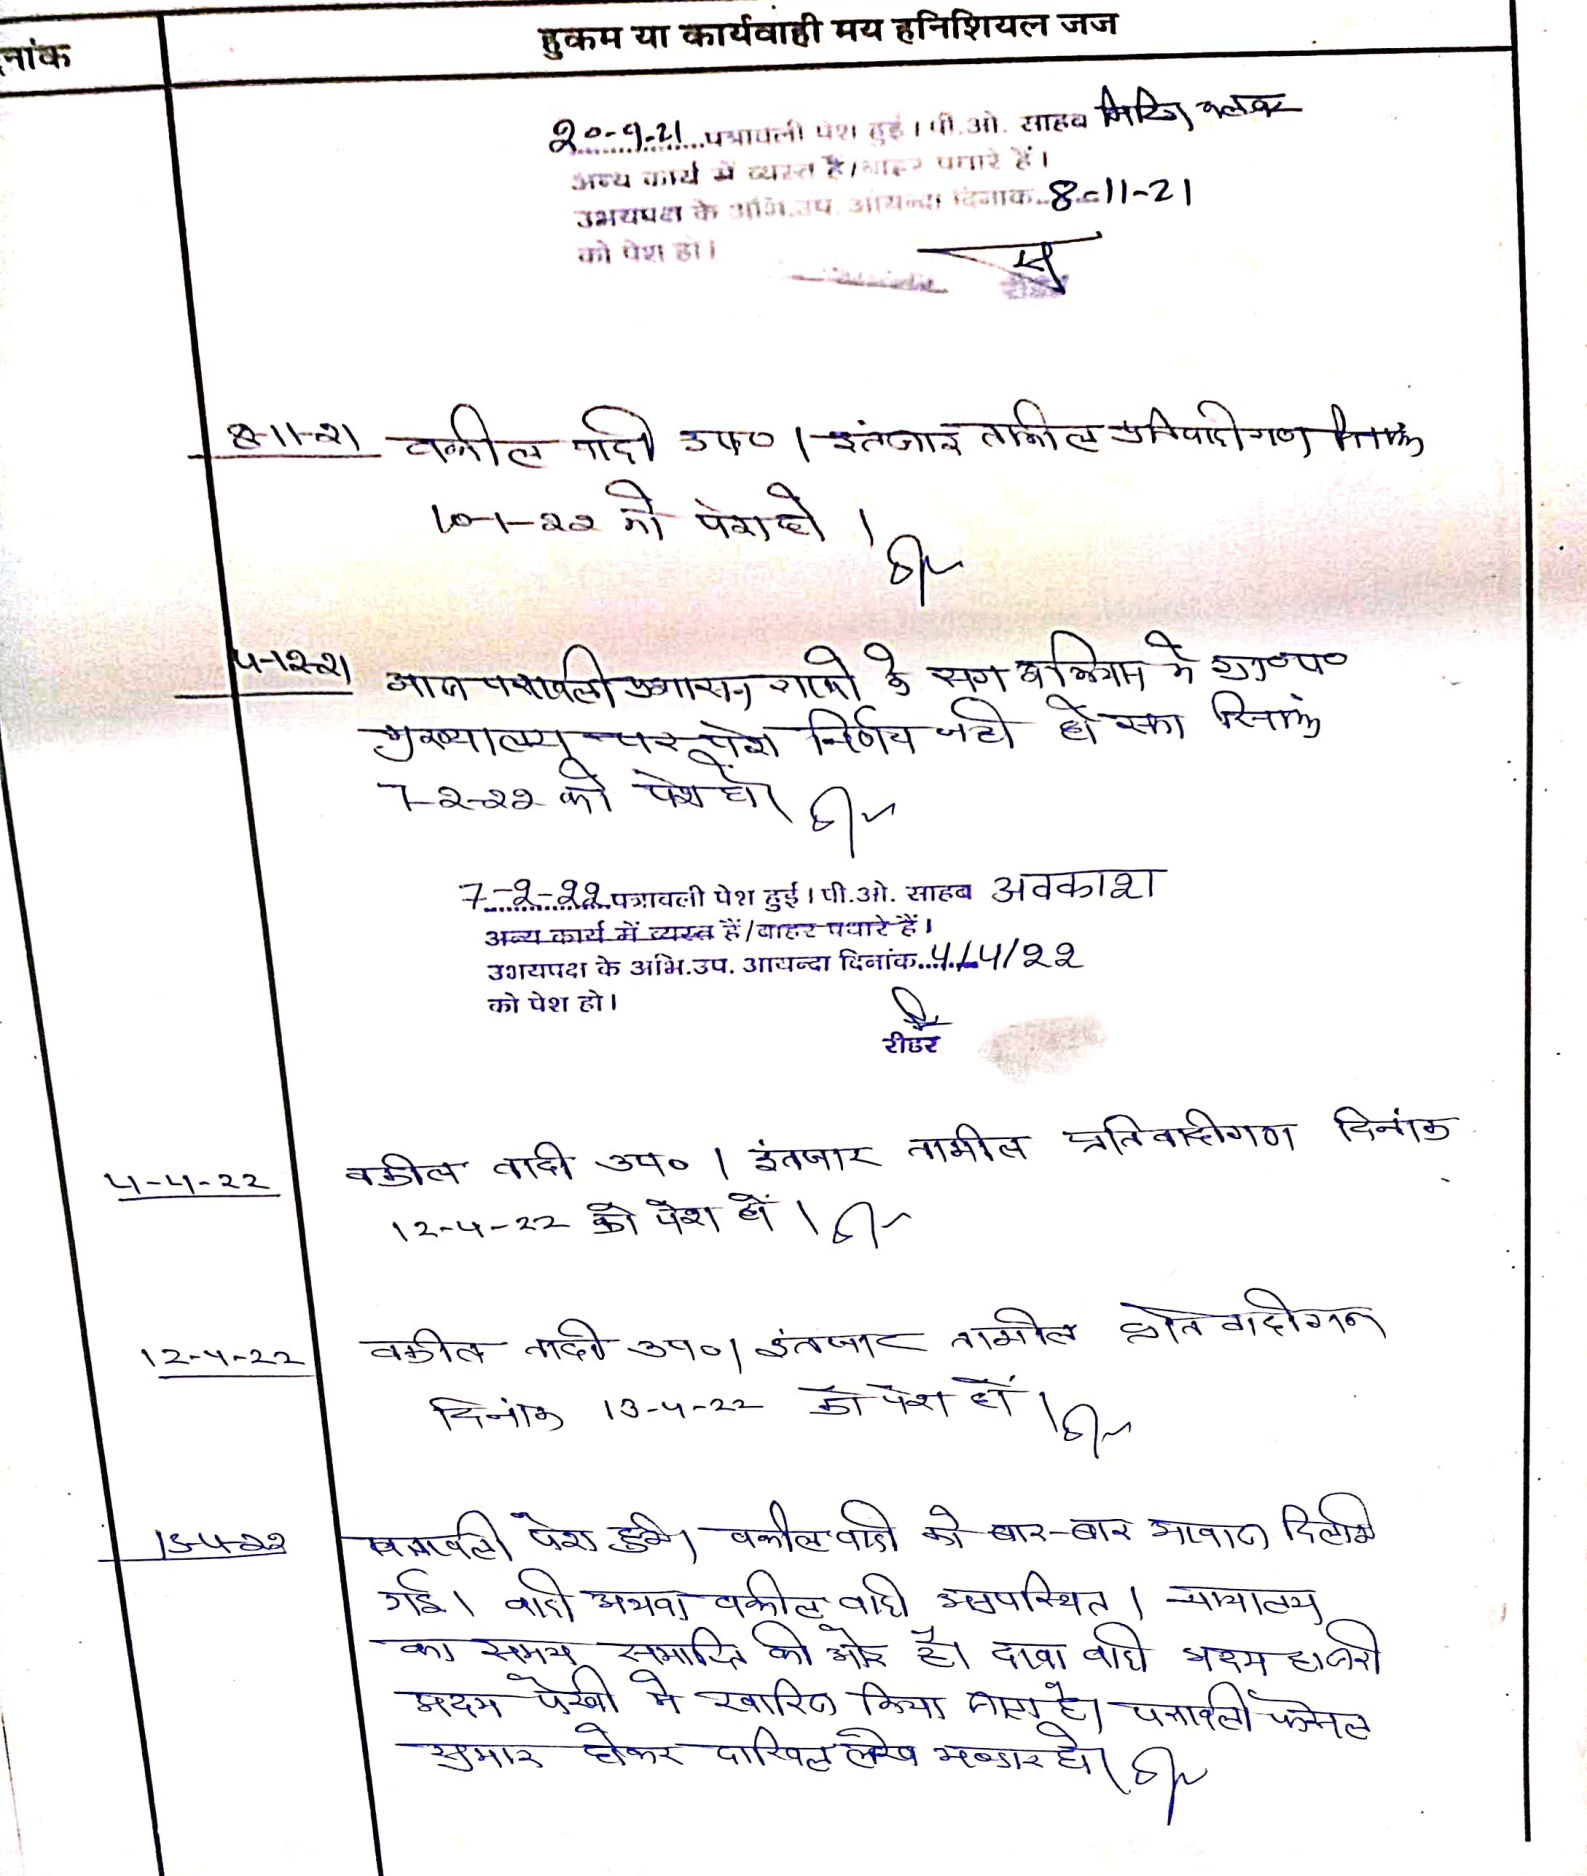 नांक
हुकम या कार्यवाही मय हनिशियल जज
20-9-21 पत्रावली पेश हुई। पी.ओ. साहब मिटिंग कलेक्टर
अन्य कार्य में व्यस्त है/बाहर पधारे हैं।
उभयपक्ष के अभि.उप. आयन्दा दिनांक..8-11-21
को पेश हो।
8-11-21 वकील वादी उप० । इंतजार तामील प्रतिवादीगण दिनांक
10-1-22 को पेश हो ।
आज पत्रावली प्रशासन गावों के संग अभियान में ग्रा०प०
मुख्यालय पर पेश निर्णय नही हो सका दिनांक
7-2-22 को पेश हो।
7-2-22 पत्रावली पेश हुई। पी.ओ. साहब अवकाश
अन्य कार्य में व्यस्त हैं/बाहर पधारे हैं।
उभयपक्ष के अभि.उप. आयन्दा दिनांक..4/4/22
को पेश हो।
रीडर
4-4-22 वकील वादी उप० । इंतजार तामील प्रतिवादीगण दिनांक
12-4-22 को पेश हों ।
12-4-22 वकील वादी उप० । इंतजार तामील प्रतिवादीगण
दिनांक 13-4-22 को पेश हों ।
13-4-22 पत्रावली पेश हुई। वकील वादी को बार-बार आवाज दिलाई
गई। वादी अथवा वकील वादी अनुपस्थित । न्यायालय
का समय समाप्ति की ओर है। दावा वादी अदम हाजरी
अदम पेरवी मे खारिज किया जाता है। पत्रावली फैसल
सुमार होकर दाखिल लेख भण्डार हो।